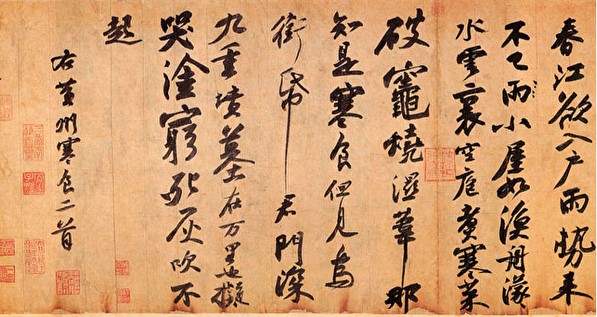 春江欲入戶雨勢來
不已雨小屋如漁舟濛
水雲裏空庖煮寒菜
破竈燒濕葦那
知是寒食但見烏
銜帋君門深
九重墳墓在万里也擬
哭塗窮死灰吹不
起
右黃州寒食二首